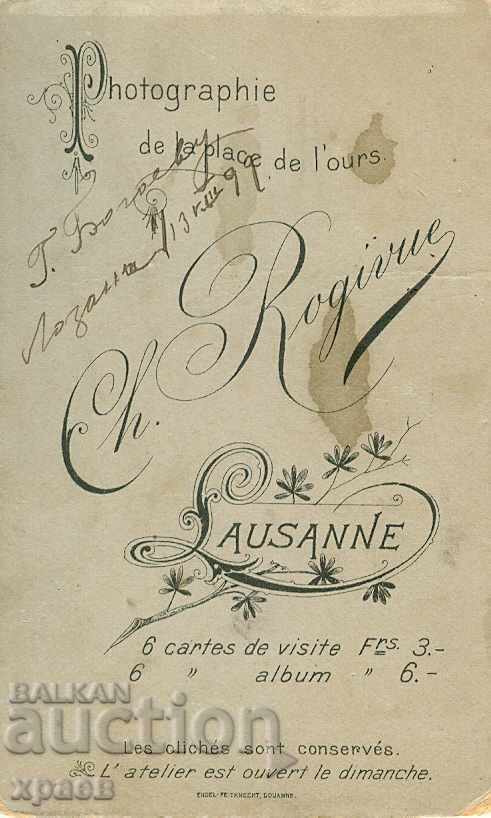 Photographie
de la place de l'ours.
Г. Богоеву
Лозанна 13 VIII 99.
Ch. Rogivue
LAUSANNE
6 cartes de visite Frs. 3.-
6 " album " 6.-
Les clichés sont conservés.
L'atelier est ouvert le dimanche.
BALKAN
auction
храов